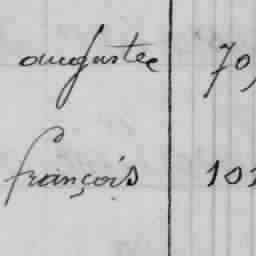 augustee 70
françois 103